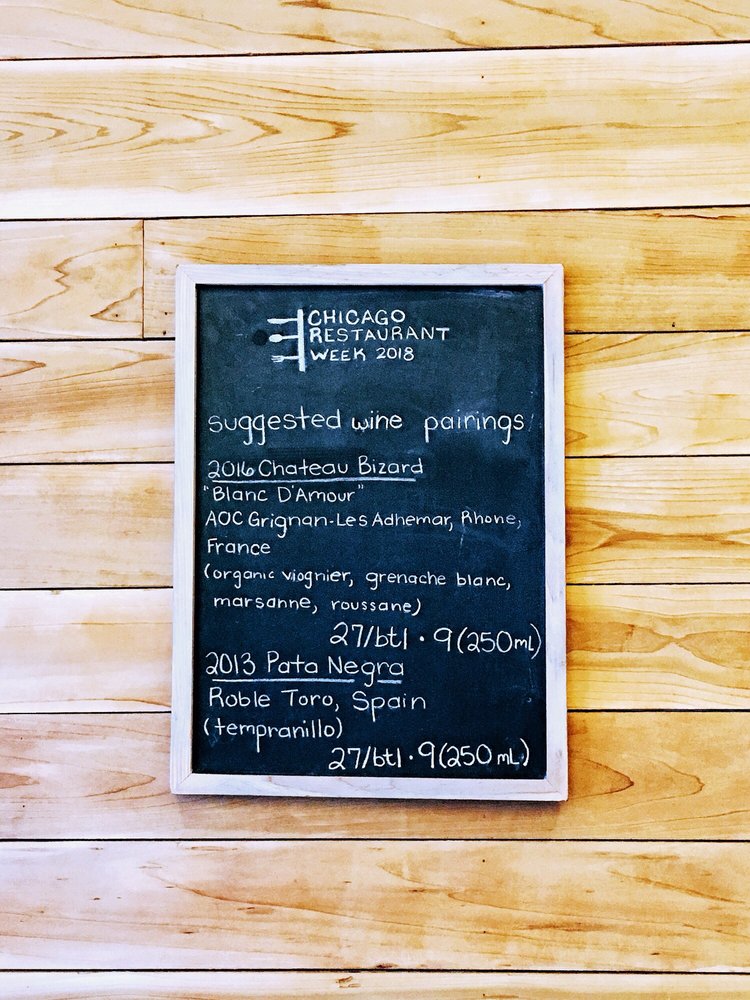 CHICAGO
RESTAURANT
WEEK 2018
suggested wine pairings
2016 Chateau Bizard
"Blanc D'Amour"
AOC Grignan-Les Adhemar, Rhone,
France
(organic viognier, grenache blanc,
marsanne, roussane)
27/btl · 9(250mL)
2013 Pata Negra
Roble Toro, Spain
(tempranillo)
27/btl · 9(250 mL.)